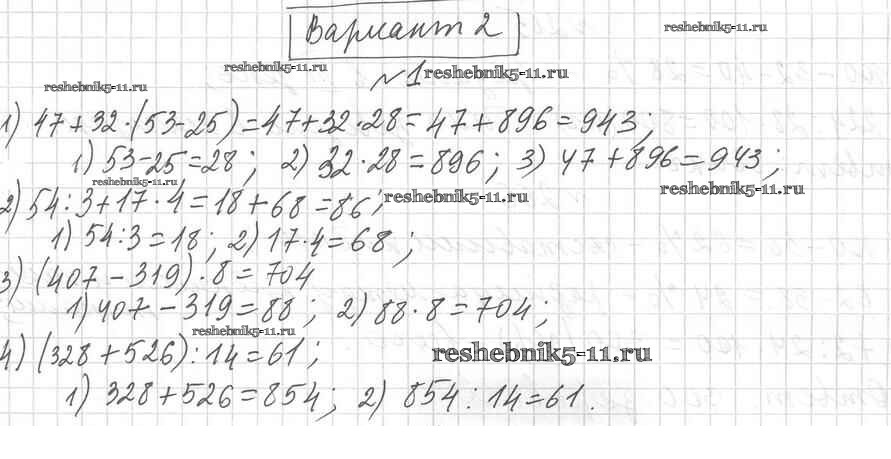 Вариант 2
reshebnik5-11.ru
reshebnik5-11.ru
№1
reshebnik5-11.ru
reshebnik5-11.ru
1) 47+32·(53-25)=47+32·28=47+896=943;
1) 53-25=28; 2) 32·28=896; 3) 47+896=943;
reshebnik5-11.ru
reshebnik5-11.ru
2) 54:3+17·4=18+68=86;
reshebnik5-11.ru
1) 54:3=18; 2) 17·4=68;
3) (407-319)·8=704
1) 407-319=88; 2) 88·8=704;
reshebnik5-11.ru
4) (328+526):14=61;
reshebnik5-11.ru
1) 328+526=854; 2) 854:14=61.